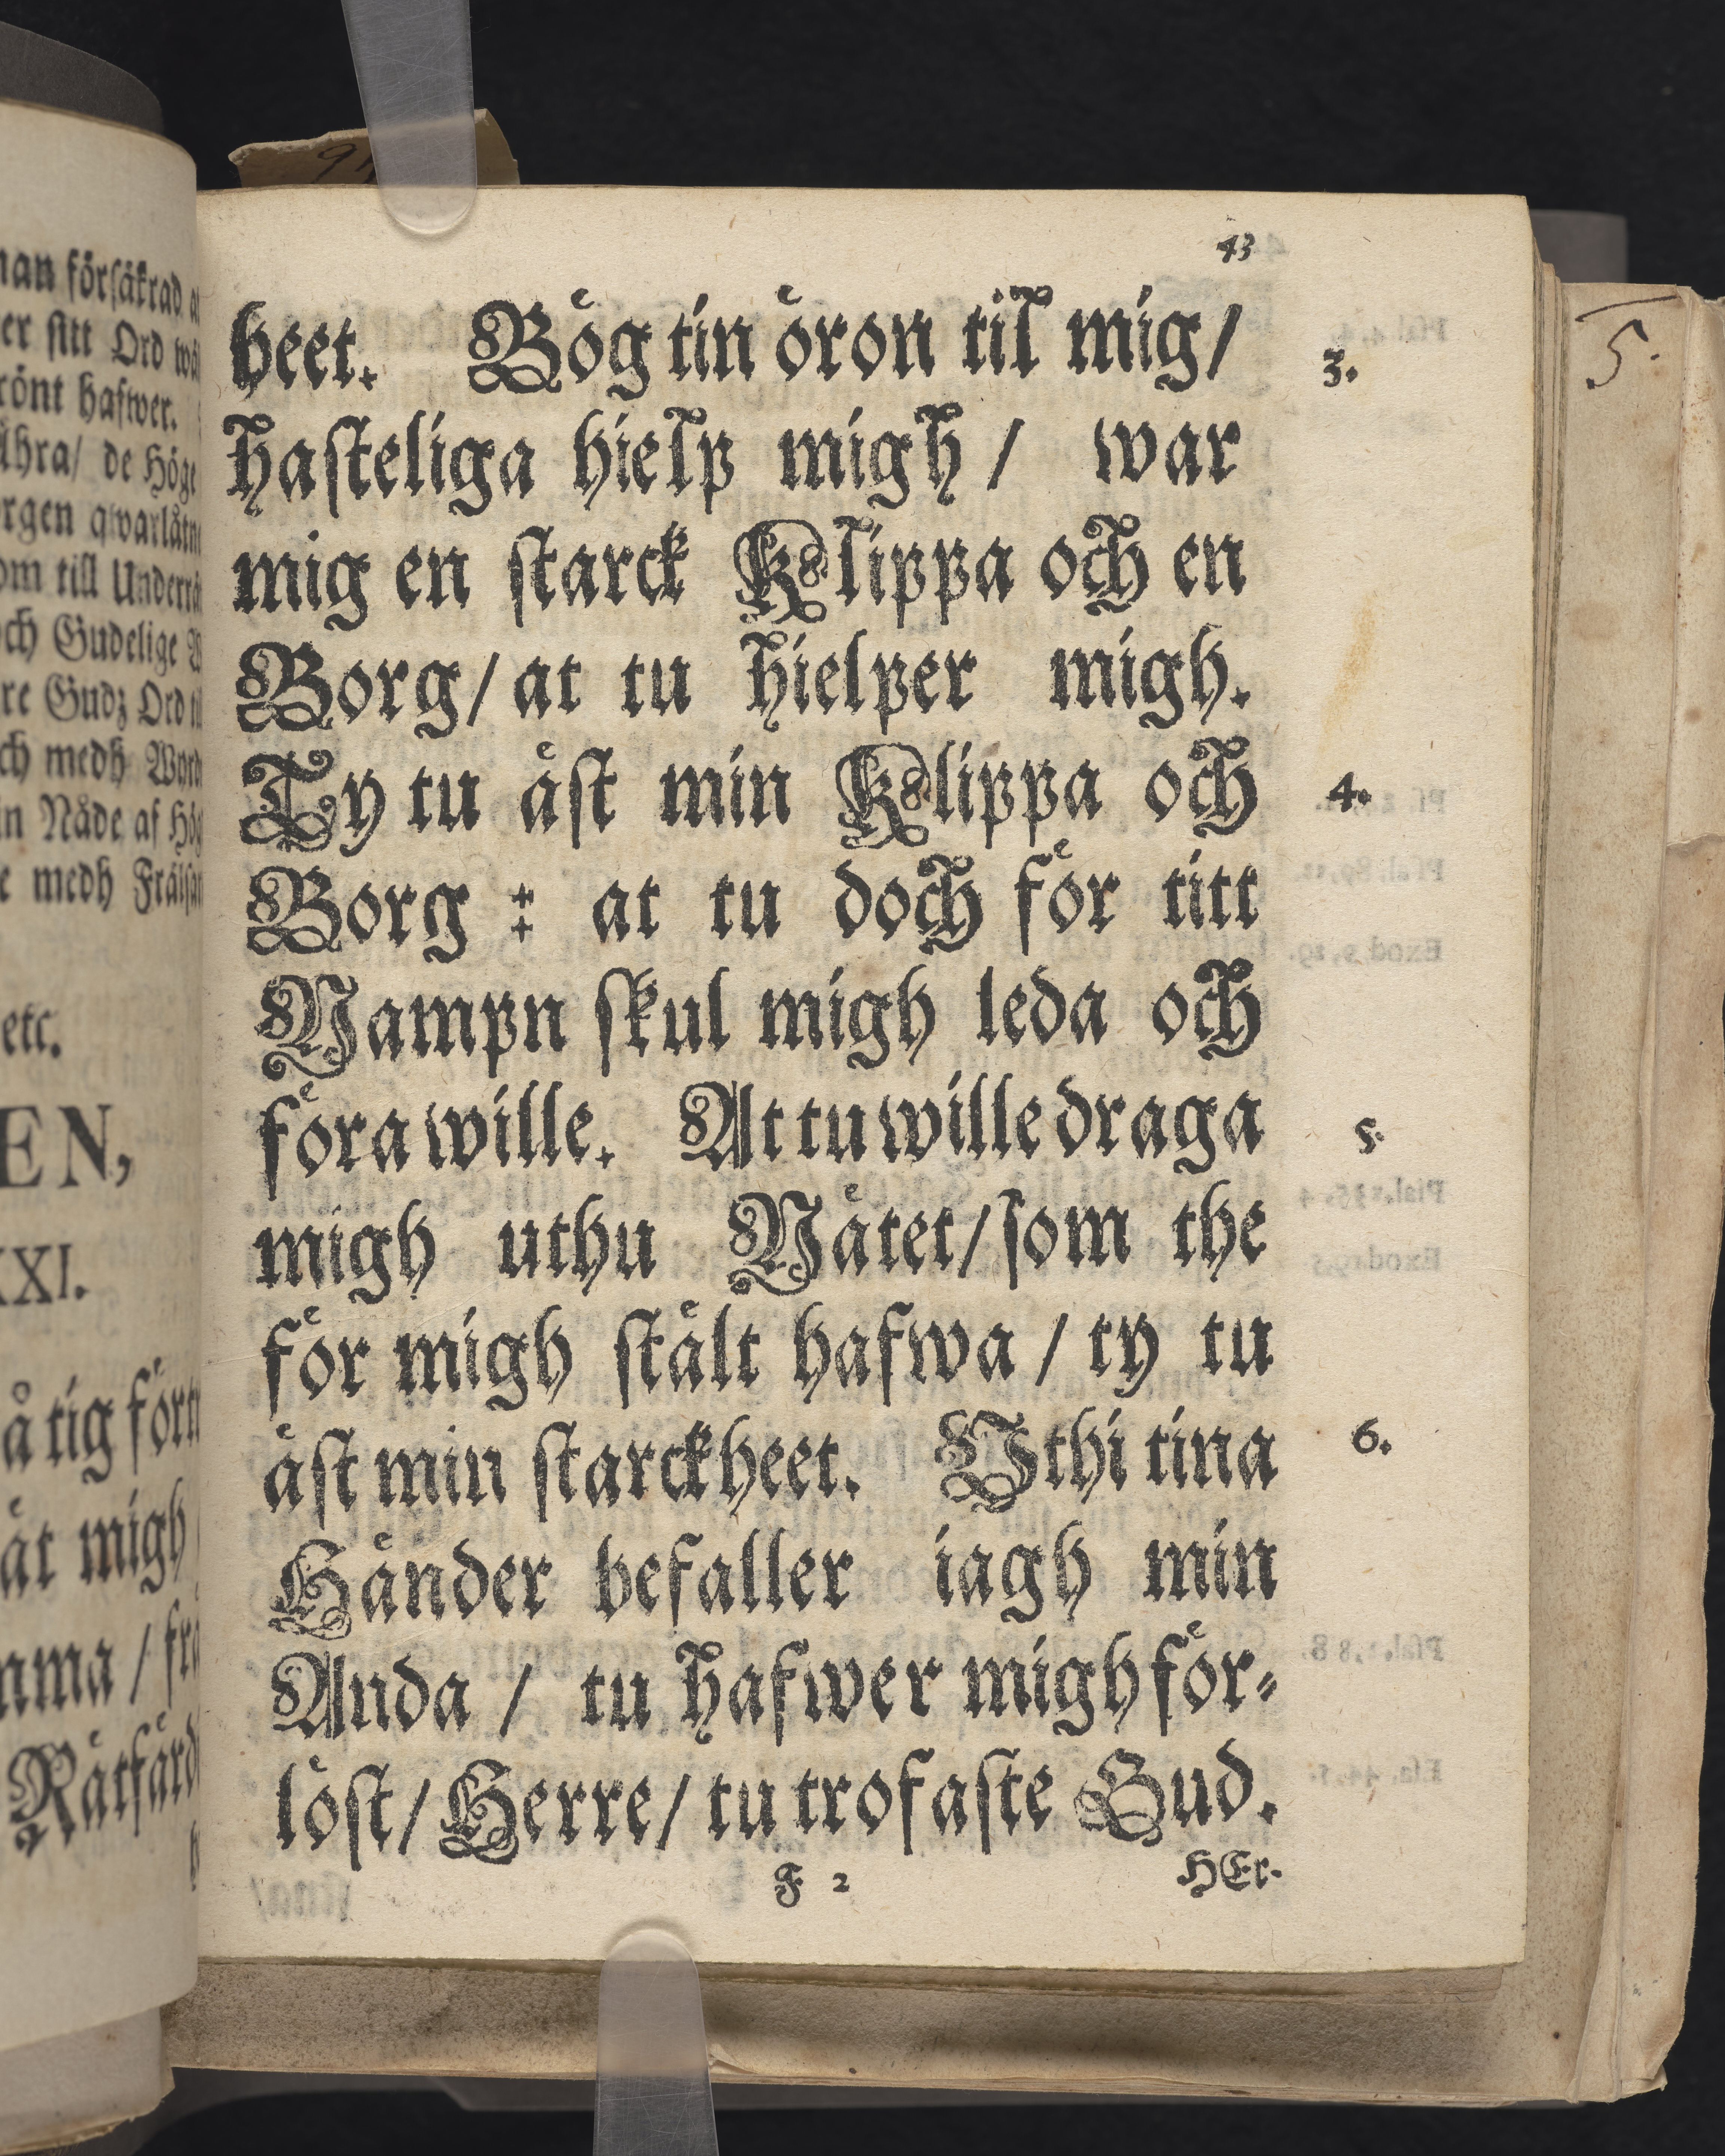 43
heet. Bög tin öron til mig/ 3.
hasteliga hielp migh / war
mig en starck Klippa och en
Borg/ at tu hielper migh.
Ty tu äst min Klippa och 4.
Borg : at tu doch för titt
Nampn skul migh leda och
föra wille. At tu wille draga 5.
migh uthu Nätet/ som the
för migh stält hafwa / ty tu
äst min starckheet. Uthi tina 6.
Händer befaller iagh min
Anda / tu hafwer migh för-
löst/ Herre/ tu trofaste Gud.
F 2 HEr-
5.
försäkrad
er sitt Ord
rönt hafwer.
de Höge
om till
och Gudelige
Gudz Ord
medh
Nåde af
medh
etc.
EN,
XXI.
tig
migh